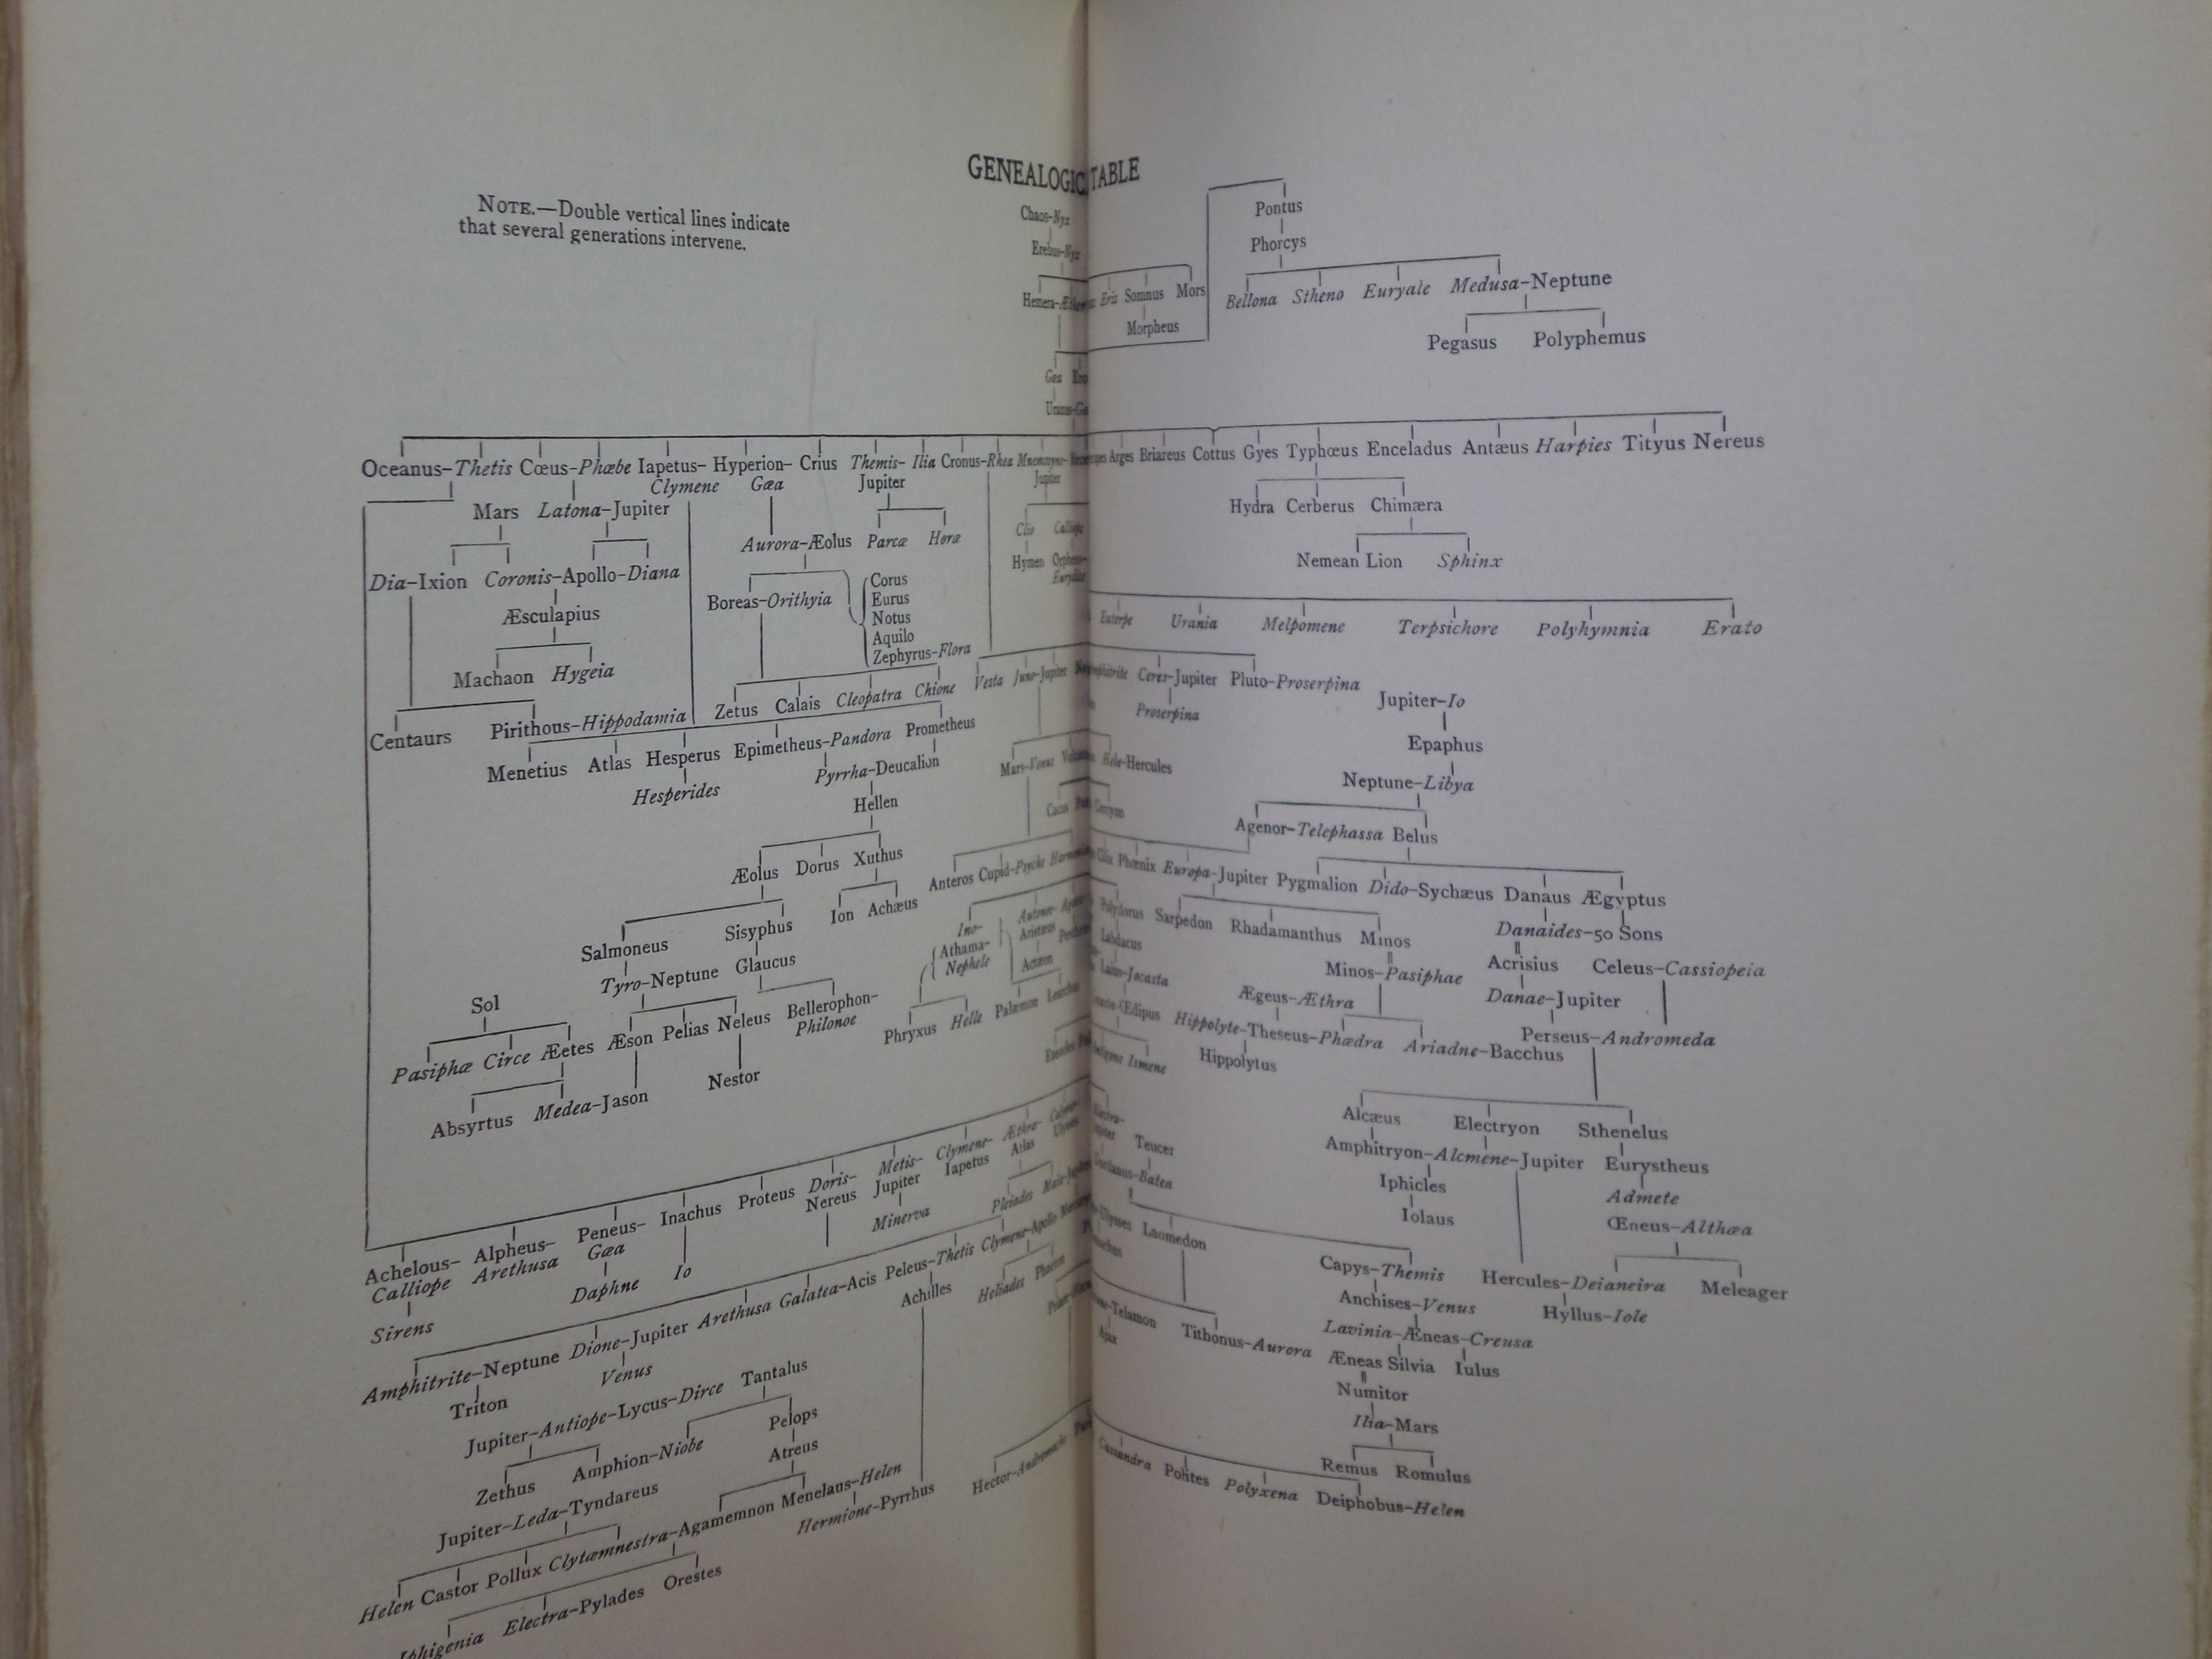 GENEALOGIC TABLE
NOTE.—Double vertical lines indicate
that several generations intervene.
Chaos-Nyx
Erebus-Nyx
Hemera-Æther Eris Somnus Mors
Morpheus
Pontus
Phorcys
Bellona Stheno Euryale Medusa-Neptune
Pegasus Polyphemus
Gæa
Uranus-
Oceanus-Thetis Cœus-Phœbe Iapetus- Hyperion- Crius Themis- Ilia Cronus-Rhea Mnemosyne- Arges Briareus Cottus Gyes Typhœus Enceladus Antæus Harpies Tityus Nereus
Clymene Gæa Jupiter Jupiter
Mars Latona-Jupiter
Hydra Cerberus Chimæra
Aurora-Æolus Parcæ Horæ
Clio Calliope
Nemean Lion Sphinx
Hymen Orpheus-
Eurydice
Dia-Ixion Coronis-Apollo-Diana
Corus
Eurus
Notus
Aquilo
Zephyrus-Flora
Boreas-Orithyia
Æsculapius
Euterpe Urania Melpomene Terpsichore Polyhymnia Erato
Machaon Hygeia
Zetus Calais Cleopatra Chione
Vesta Juno-Jupiter Ceres-Jupiter Pluto-Proserpina
Proserpina
Centaurs Pirithous-Hippodamia
Menetius Atlas Hesperus Epimetheus-Pandora Prometheus
Hesperides Pyrrha-Deucalion
Hellen
Mars-Venus Hebe-Hercules
Cacus Cercyon
Jupiter-Io
Epaphus
Neptune-Libya
Agenor-Telephassa Belus
Æolus Dorus Xuthus
Ion Achæus
Anteros Cupid-Psyche
Cilix Phœnix Europa-Jupiter Pygmalion Dido-Sychæus Danaus Ægyptus
Salmoneus Sisyphus
Ino-
Athama-
Nephele
Autonoe-
Aristæus
Actæon
Polydorus Sarpedon Rhadamanthus Minos
Danaides-50 Sons
Labdacus
Laius-Jocasta
Minos-Pasiphae Acrisius Celeus-Cassiopeia
Tyro-Neptune Glaucus
Ægeus-Æthra Danae-Jupiter
Sol
Pasiphæ Circe Æetes Æson Pelias Neleus Bellerophon-
Philonoe
Phryxus Helle Palæmon
Œdipus Hippolyte-Theseus-Phædra Ariadne-Bacchus
Perseus-Andromeda
Hippolytus
Ismene
Absyrtus Medea-Jason Nestor
Alcæus Electryon Sthenelus
Amphitryon-Alcmene-Jupiter Eurystheus
Iphicles Admete
Iolaus Œneus-Althæa
Achelous- Alpheus- Peneus- Inachus Proteus Doris- Metis- Clymene- Æthra-
Calliope Arethusa Gæa Nereus Jupiter Iapetus Atlas Ulysses
Teucer
Batea
Sirens Daphne Io Minerva Pleiades
Ulysses Laomedon
Capys-Themis Hercules-Deianeira Meleager
Anchises-Venus Hyllus-Iole
Amphitrite-Neptune Dione-Jupiter Arethusa Galatea-Acis Peleus-Thetis Clymene-Apollo
Triton Venus Achilles Heliades
Telamon Tithonus-Aurora
Ajax
Lavinia-Æneas-Creusa
Æneas Silvia Iulus
Numitor
Ilia-Mars
Remus Romulus
Jupiter-Antiope-Lycus-Dirce Tantalus
Zethus Amphion-Niobe Pelops
Atreus
Jupiter-Leda-Tyndareus
Helen Castor Pollux Clytæmnestra-Agamemnon Menelaus-Helen
Hermione-Pyrrhus
Hector-Andromache Cassandra Polites Polyxena Deiphobus-Helen
Iphigenia Electra-Pylades Orestes